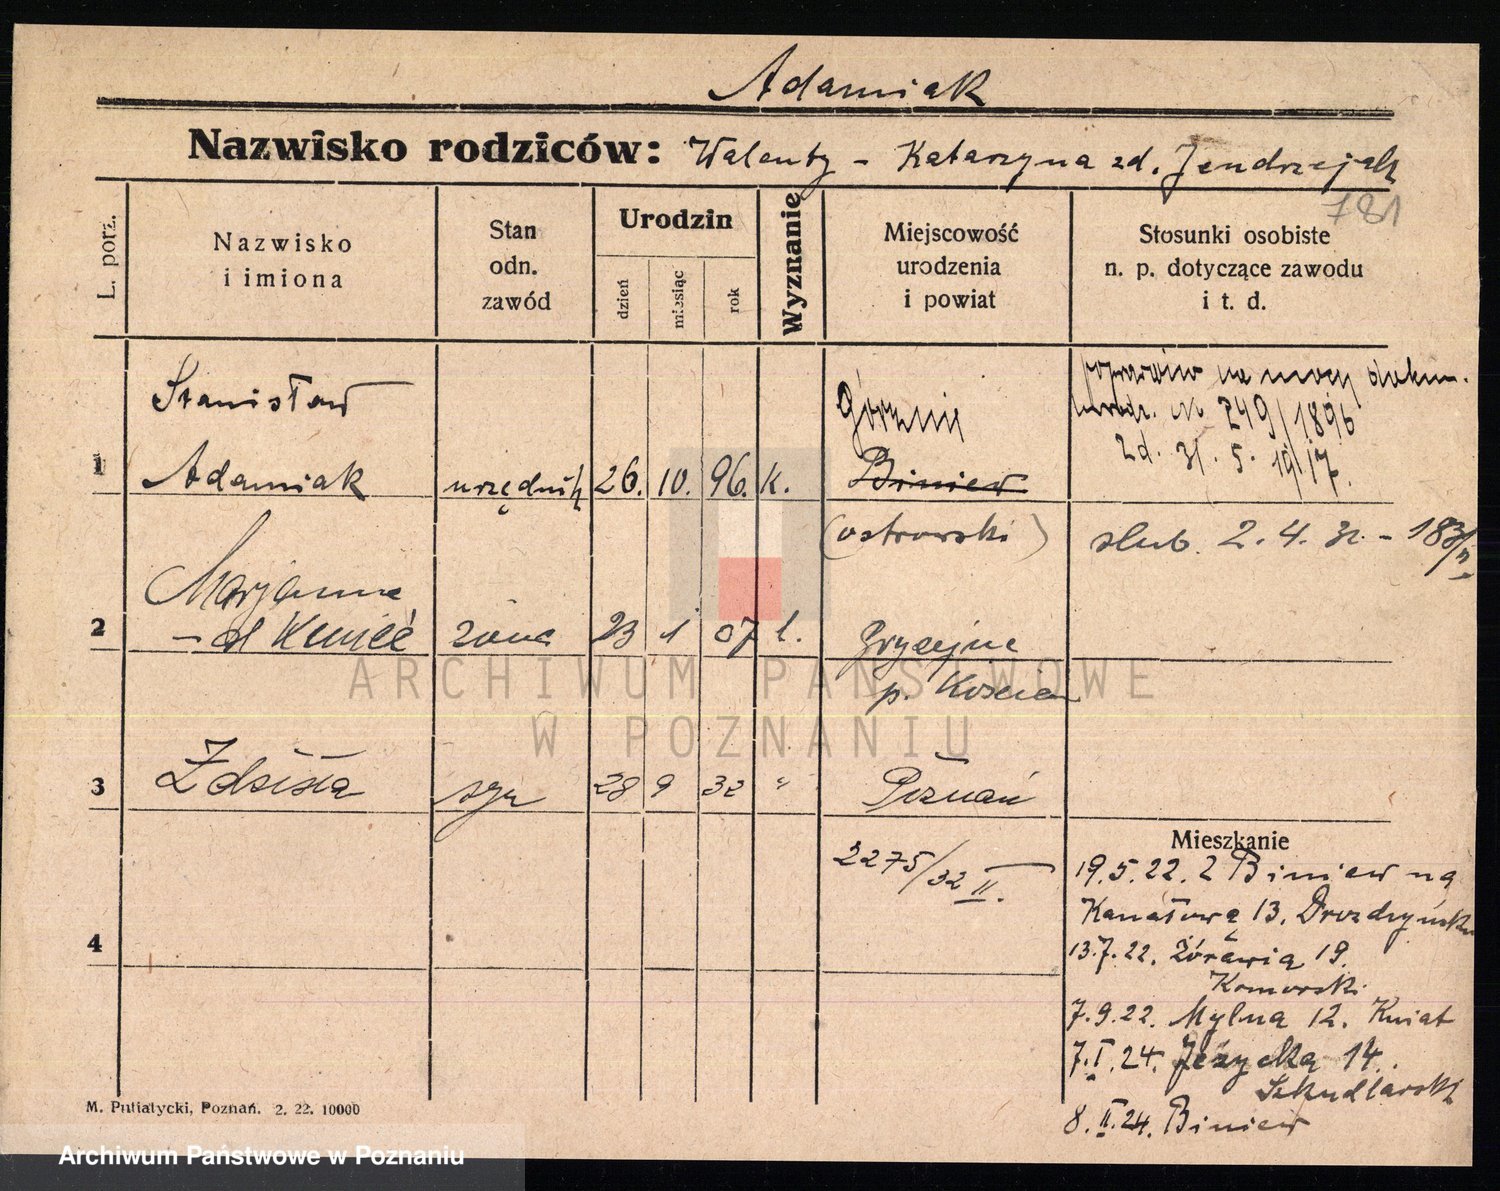 Adamiak
Nazwisko rodziców: Walenty - Katarzyna zd. Jendrzejak
781
L. porz.
Nazwisko
i imiona
Stan
odn.
zawód
Urodzin
dzień
miesiąc
rok
Wyznanie
Miejscowość
urodzenia
i powiat
Stosunki osobiste
n. p. dotyczące zawodu
i t. d.
Stanisław
1 Adamiak urzędnik 26. 10. 96. k.
Górznie
Biniew
(ostrowski)
na mocy dokum.
urodz. nr 249/1896
zd. 31. 5. 1917.
slub. 2. 4. 31. - 183/II
Marjanna
2 żona 23 1 07 k.
p. Kościan
3 Zdzisła syn 28 9 32 " Poznań
2275/32 II.
4
Mieszkanie
19.5.22. z Biniew na
Kanałową 13. Drozdzyński
13.7.22. Żórawia 19.
Komorski
7.9.22. Mylna 12. Kwiat
7.I.24. Jeżycka 14.
Szkudlarski
8.II.24. Biniew
M. Putiatycki, Poznań. 2. 22. 10000
ARCHIWUM PAŃSTWOWE
W POZNANIU
Archiwum Państwowe w Poznaniu